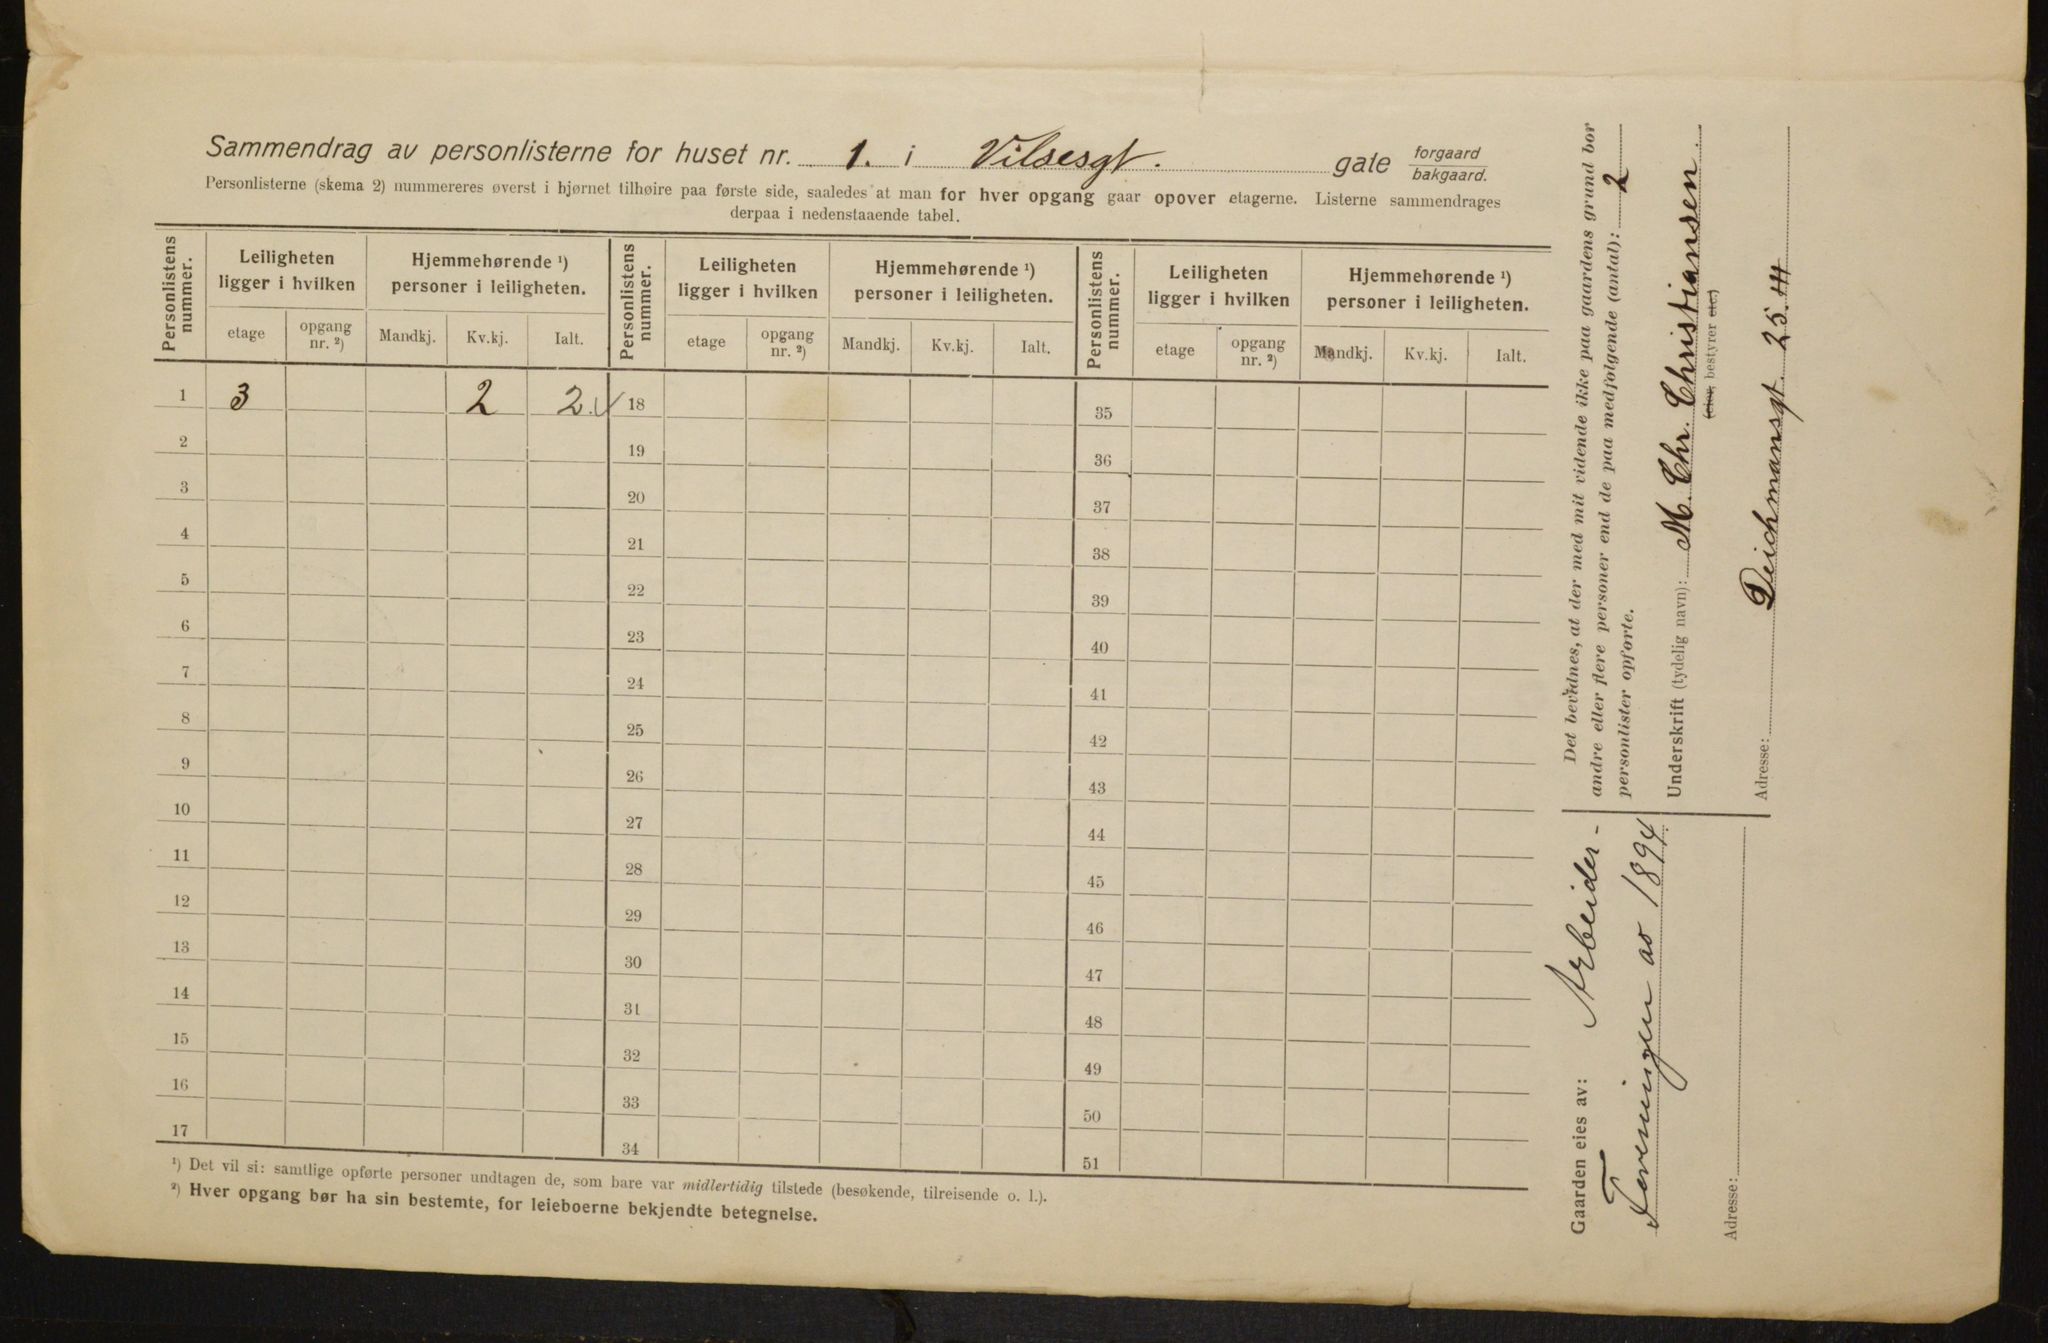 Sammendrag av personlisterne for huset nr. 1. i Vilsesgt. gate forgaard
bakgaard.
Personlisterne (skema 2) nummereres øverst i hjørnet tilhøire paa første side, saaledes at man for hver opgang gaar opover etagerne. Listerne sammendrages
derpaa i nedenstaaende tabel.
Personlistens nummer. Leiligheten ligger i hvilken Hjemmehørende ¹) personer i leiligheten. Personlistens nummer. Leiligheten ligger i hvilken Hjemmehørende ¹) personer i leiligheten. Personlistens nummer. Leiligheten ligger i hvilken Hjemmehørende ¹) personer i leiligheten.
etage opgang nr. ²) Mandkj. Kv.kj. Ialt. etage opgang nr. ²) Mandkj. Kv.kj. Ialt. etage opgang nr. ²) Mandkj. Kv.kj. Ialt.
1 3 2 2. 18 35
2 19 36
3 20 37
4 21 38
5 22 39
6 23 40
7 24 41
8 25 42
9 26 43
10 27 44
11 28 45
12 29 46
13 30 47
14 31 48
15 32 49
16 33 50
17 34 51
¹) Det vil si: samtlige opførte personer undtagen de, som bare var midlertidig tilstede (besøkende, tilreisende o. l.).
²) Hver opgang bør ha sin bestemte, for leieboerne bekjendte betegnelse.
Det bevidnes, at der med mit vidende ikke paa gaardens grund bor
andre eller flere personer end de paa medfølgende (antal): 2
personlister opførte.
Underskrift (tydelig navn): M. Chr. Christiansen.
(eier, bestyrer etc.)
Adresse: Deichmansgt. 25.4
Gaarden eies av: Arbeider-
Foreningen av 1894
Adresse: